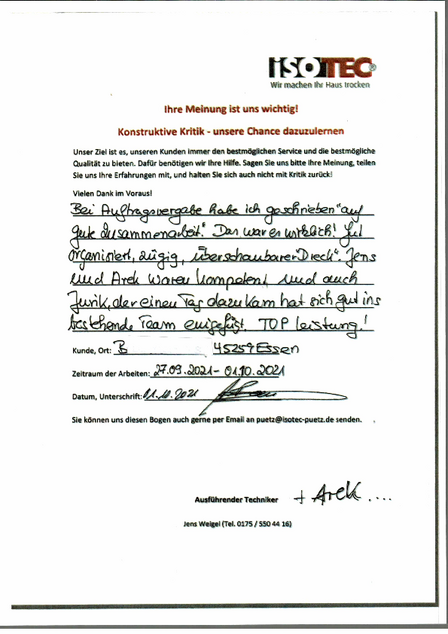 ISOTEC®
Wir machen Ihr Haus trocken
Ihre Meinung ist uns wichtig!
Konstruktive Kritik - unsere Chance dazuzulernen
Unser Ziel ist es, unseren Kunden immer den bestmöglichen Service und die bestmögliche
Qualität zu bieten. Dafür benötigen wir Ihre Hilfe. Sagen Sie uns bitte Ihre Meinung, teilen
Sie uns Ihre Erfahrungen mit, und halten Sie sich auch nicht mit Kritik zurück!
Vielen Dank im Voraus!
Bei Auftragsvergabe habe ich geschrieben "auf
gute Zusammenarbeit". Das war es wirklich! Gut
organisiert, zügig, "überschaubarer Dreck". Jens
und Arek waren kompetent und auch
Jurik, der einen Tag dazu kam hat sich gut ins
bestehende Team eingefügt. TOP Leistung!
Kunde, Ort: B 45259 Essen
Zeitraum der Arbeiten: 27.09.2021 - 01.10.2021
Datum, Unterschrift: 01.10.2021
Sie können uns diesen Bogen auch gerne per Email an puetz@isotec-puetz.de senden.
Ausführender Techniker + Arek ....
Jens Weigel (Tel. 0175 / 550 44 16)